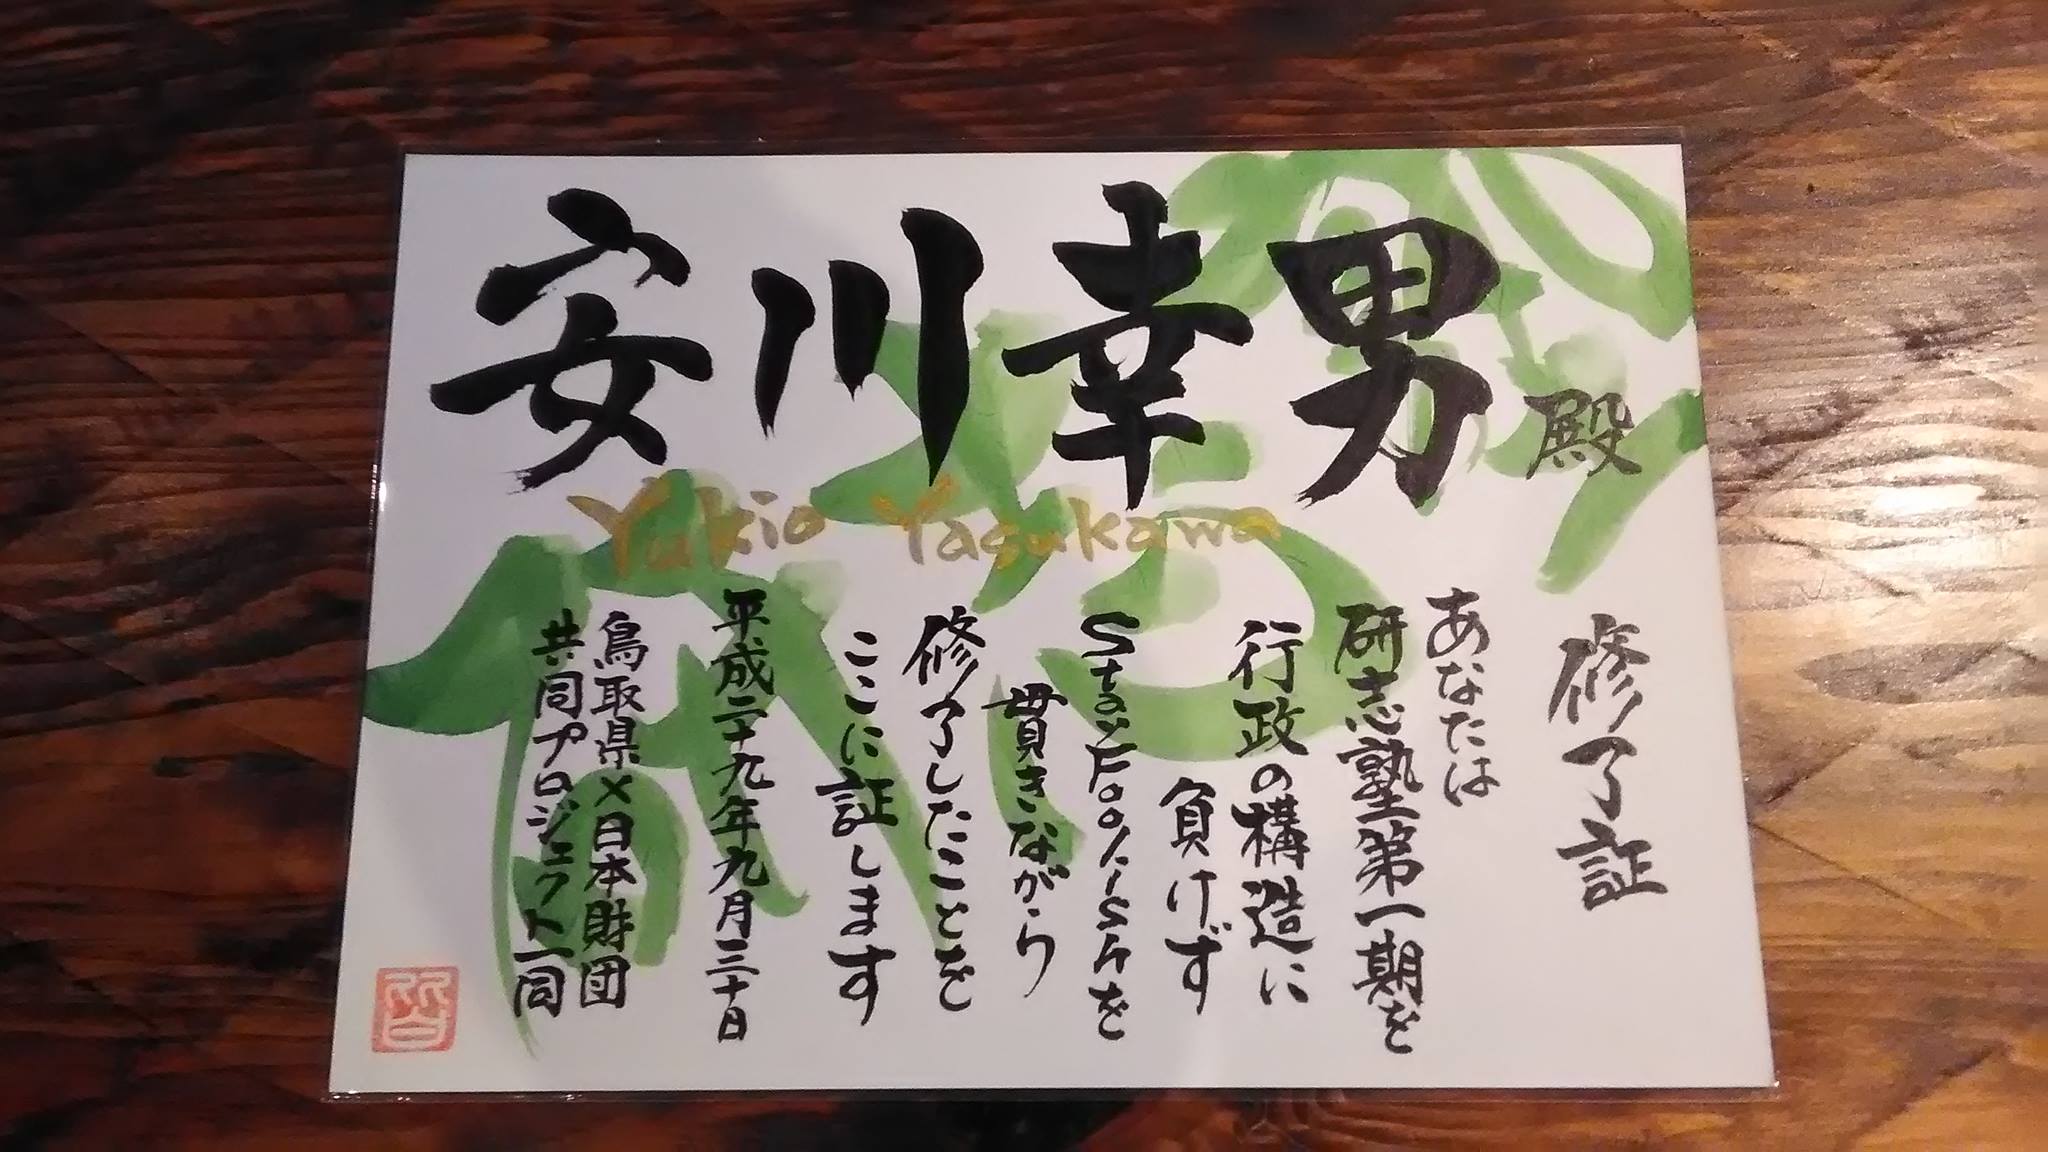 安川幸男 殿
Yukio Yasukawa
修了証
あなたは
研志塾第一期を
行政の構造に
負けず
Stay Foolishを
貫きながら
修了したことを
ここに証します
平成二十九年九月三十日
鳥取県×日本財団
共同プロジェクト一同